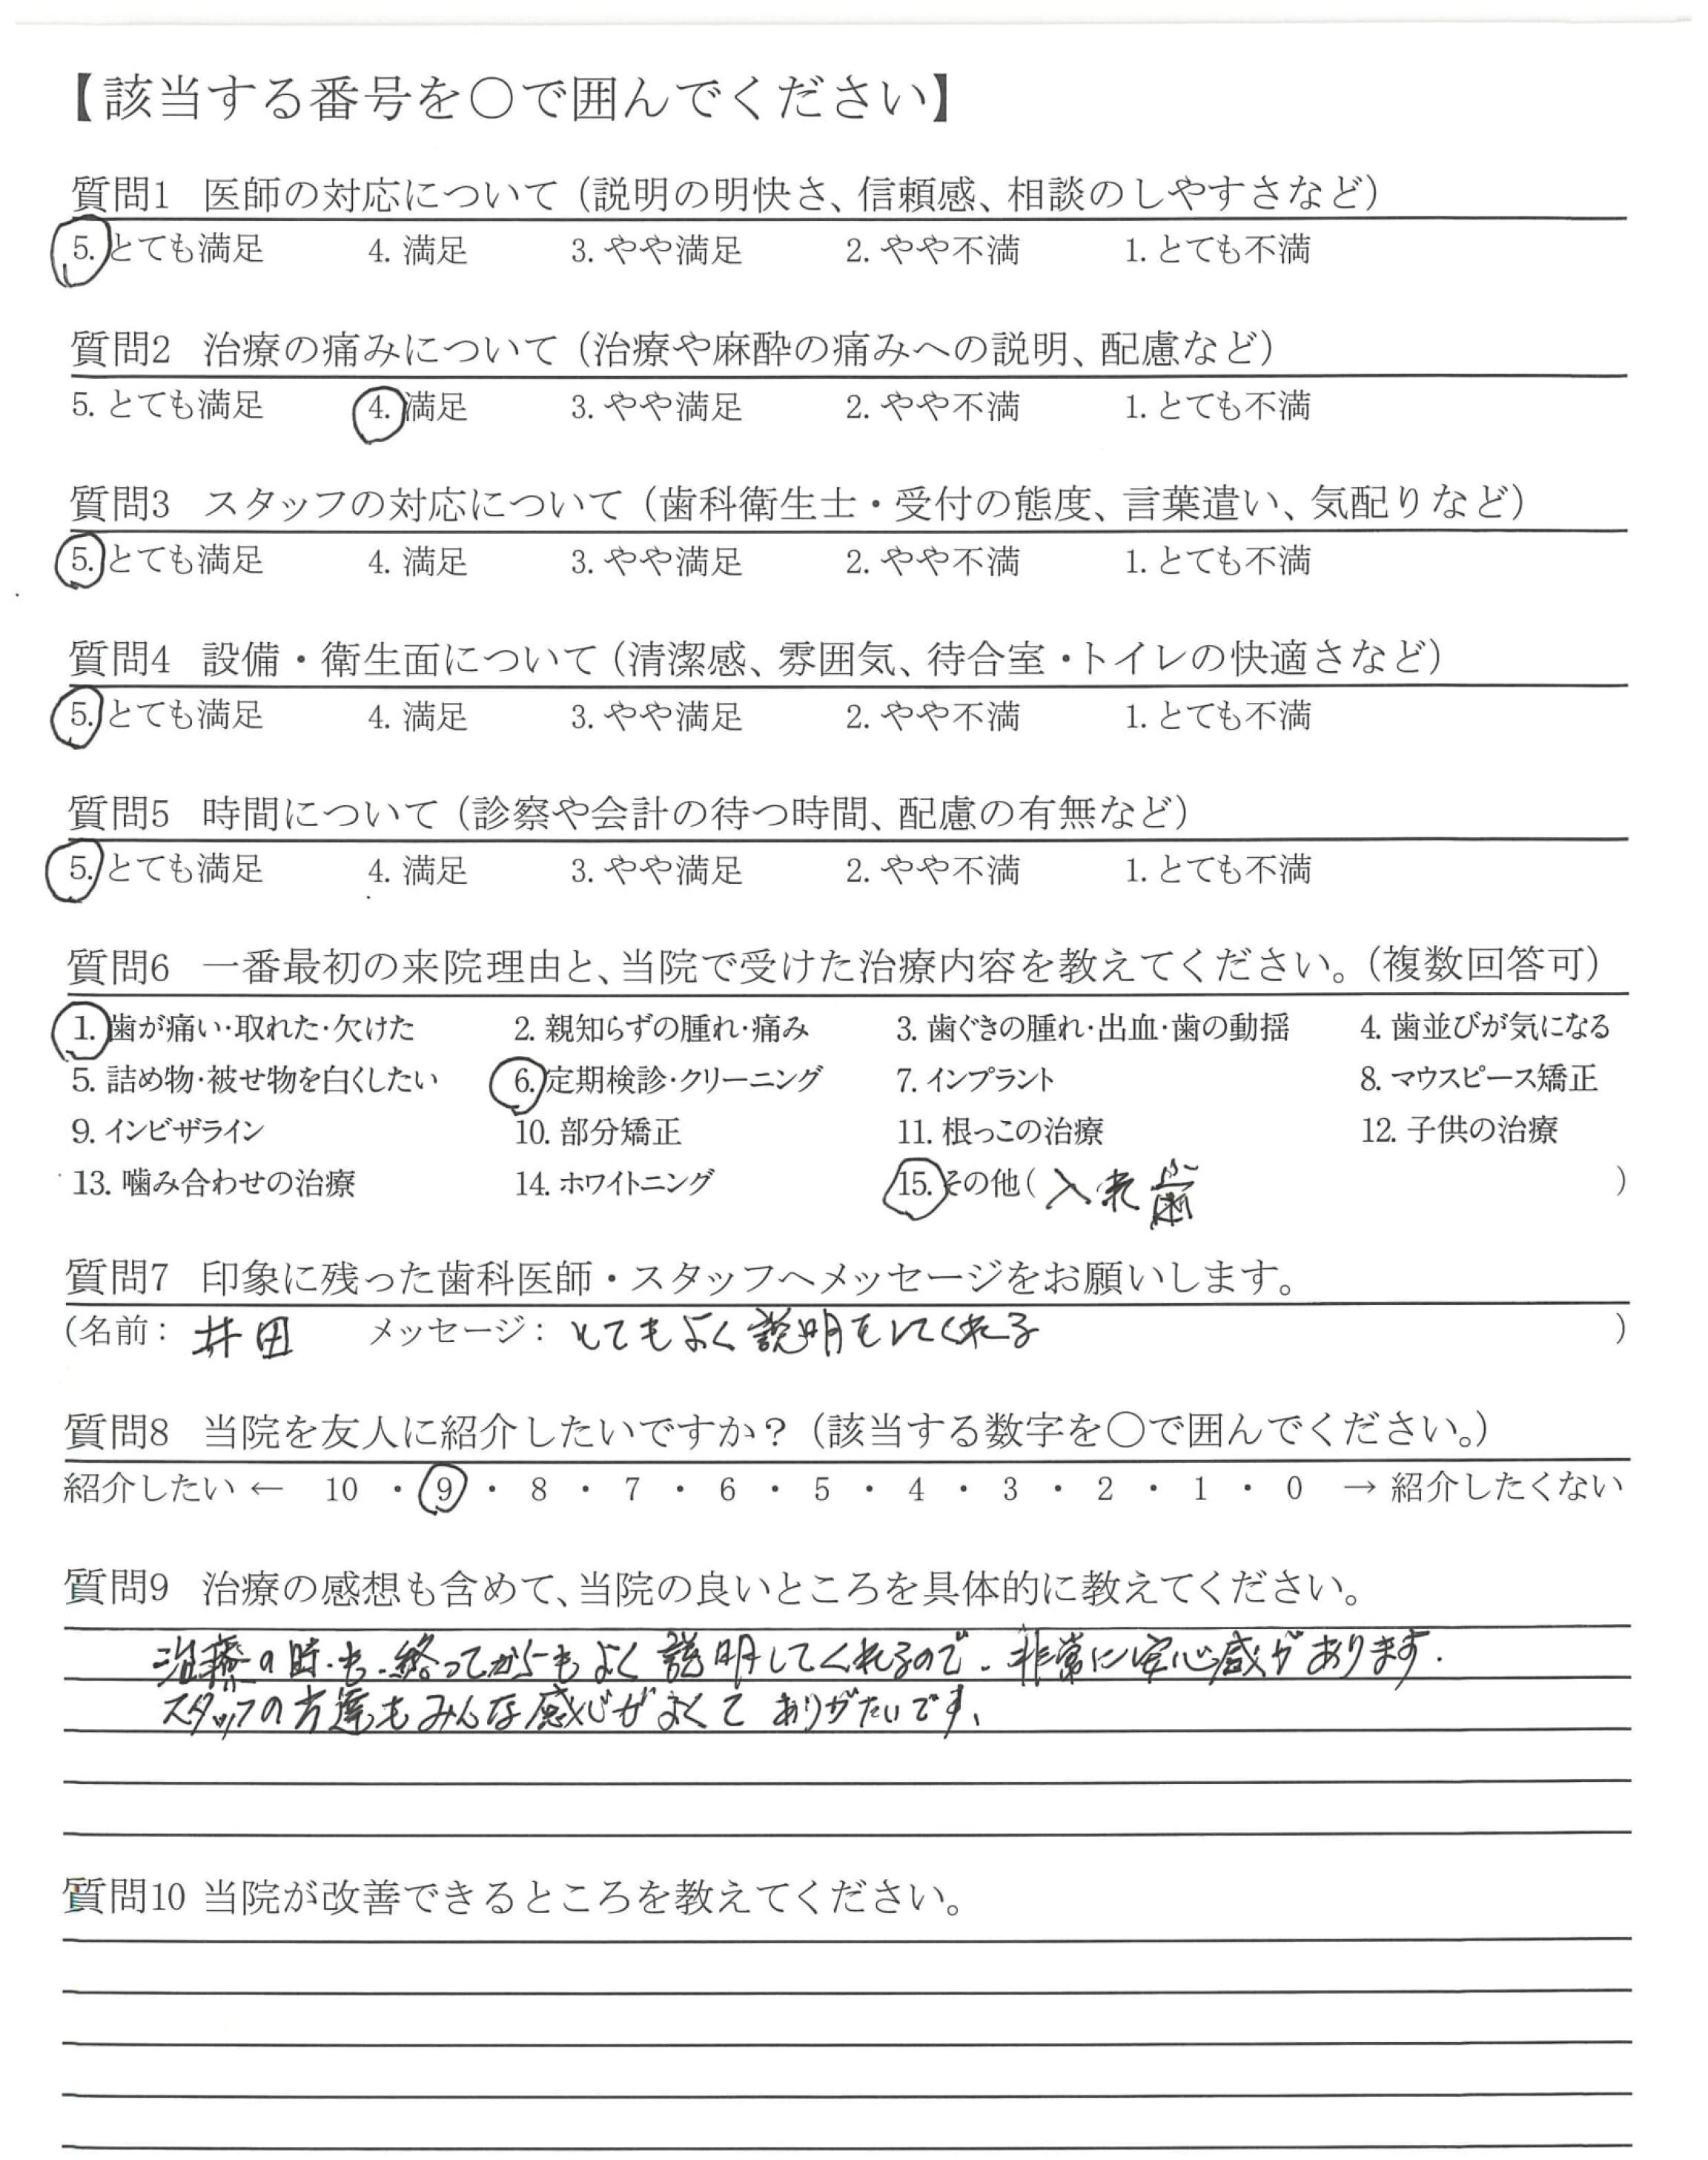 【該当する番号を〇で囲んでください】
質問1 医師の対応について（説明の明快さ、信頼感、相談のしやすさなど）
5. とても満足 4. 満足 3. やや満足 2. やや不満 1. とても不満
質問2 治療の痛みについて（治療や麻酔の痛みへの説明、配慮など）
5. とても満足 4. 満足 3. やや満足 2. やや不満 1. とても不満
質問3 スタッフの対応について（歯科衛生士・受付の態度、言葉遣い、気配りなど）
5. とても満足 4. 満足 3. やや満足 2. やや不満 1. とても不満
質問4 設備・衛生面について（清潔感、雰囲気、待合室・トイレの快適さなど）
5. とても満足 4. 満足 3. やや満足 2. やや不満 1. とても不満
質問5 時間について（診察や会計の待つ時間、配慮の有無など）
5. とても満足 4. 満足 3. やや満足 2. やや不満 1. とても不満
質問6 一番最初の来院理由と、当院で受けた治療内容を教えてください。（複数回答可）
1. 歯が痛い・取れた・欠けた 2. 親知らずの腫れ・痛み 3. 歯ぐきの腫れ・出血・歯の動揺 4. 歯並びが気になる
5. 詰め物・被せ物を白くしたい 6. 定期検診・クリーニング 7. インプラント 8. マウスピース矯正
9. インビザライン 10. 部分矯正 11. 根っこの治療 12. 子供の治療
13. 噛み合わせの治療 14. ホワイトニング 15. その他（入れ歯）
質問7 印象に残った歯科医師・スタッフへメッセージをお願いします。
（名前：井田 メッセージ：とてもよく説明をしてくれる）
質問8 当院を友人に紹介したいですか？（該当する数字を〇で囲んでください。）
紹介したい ← 10 ・ 9 ・ 8 ・ 7 ・ 6 ・ 5 ・ 4 ・ 3 ・ 2 ・ 1 ・ 0 → 紹介したくない
質問9 治療の感想も含めて、当院の良いところを具体的に教えてください。
治療の時も、終ってからもよく説明してくれるので、非常に安心感があります。
スタッフの方達もみんな感じがよくてありがたいです。
質問10 当院が改善できるところを教えてください。